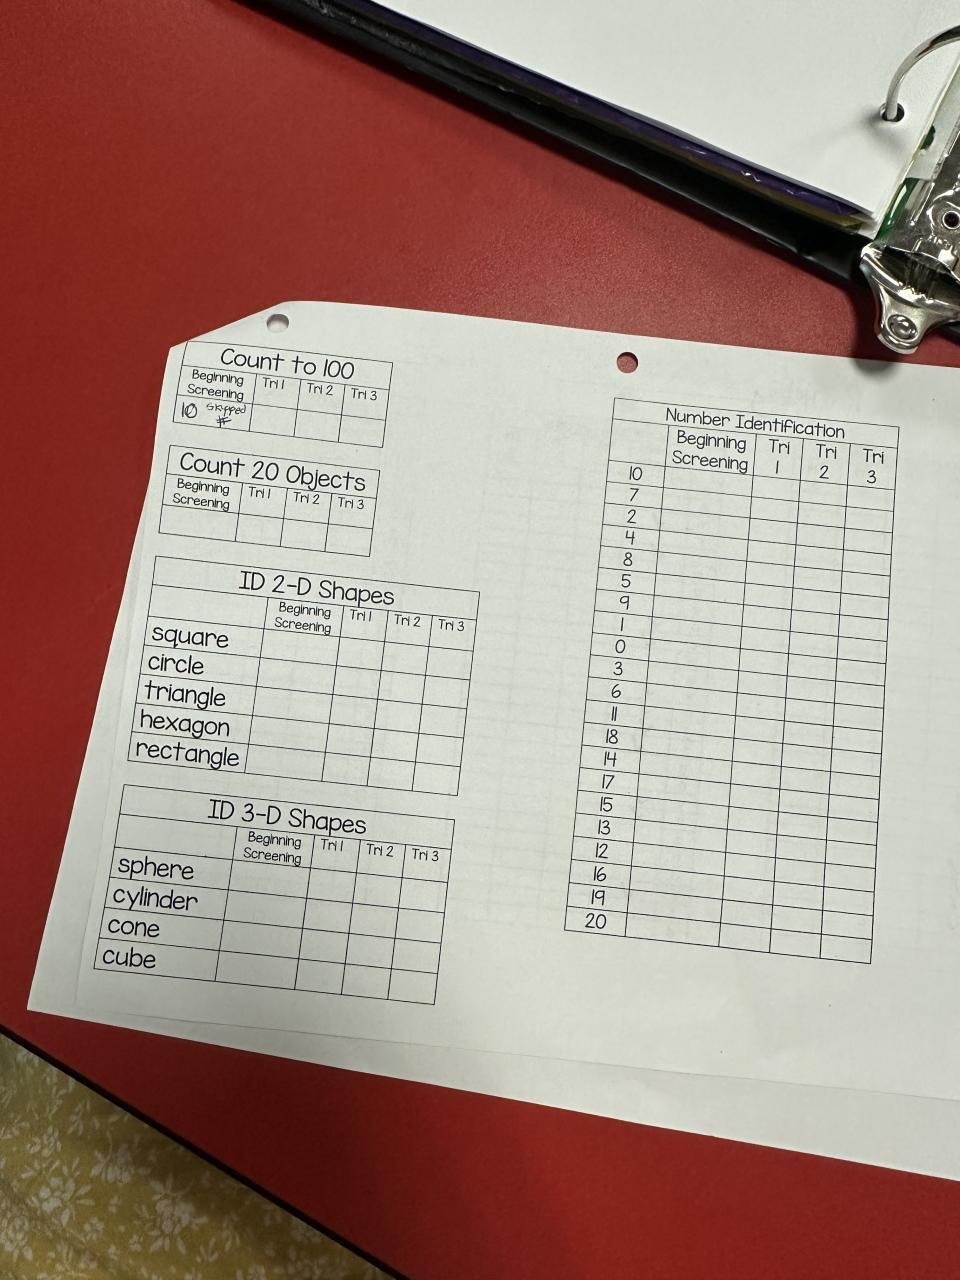 Count to 100
Beginning Screening Tri 1 Tri 2 Tri 3
10 skipped #
Count 20 Objects
Beginning Screening Tri 1 Tri 2 Tri 3
ID 2-D Shapes
Beginning Screening Tri 1 Tri 2 Tri 3
square
circle
triangle
hexagon
rectangle
ID 3-D Shapes
Beginning Screening Tri 1 Tri 2 Tri 3
sphere
cylinder
cone
cube
Number Identification
Beginning Screening Tri 1 Tri 2 Tri 3
10
7
2
4
8
5
9
1
0
3
6
11
18
14
17
15
13
12
16
19
20